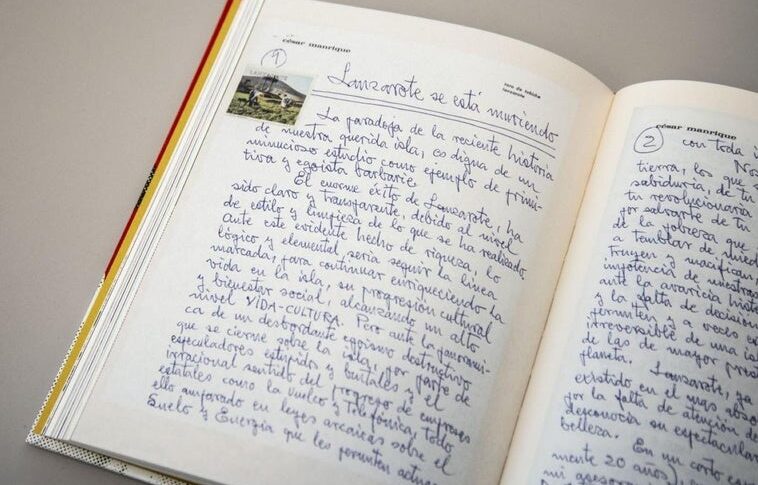 césar manrique
1
LANZAROTE
taro de tahiche
lanzarote
Lanzarote se está muriendo
La paradoja de la reciente historia
de nuestra querida isla, es digna de un
minucioso estudio como ejemplo de primi-
tiva y egoista barbarie.
El enorme éxito de Lanzarote, ha
sido claro y transparente, debido al nivel
de estilo y limpieza de lo que se ha realizado
Ante este evidente hecho de riqueza, lo
lógico y elemental sería seguir la linea
marcada, para continuar enriqueciendo la
vida en la isla, su progresión cultural
y bienestar social, alcanzando un alto
nivel VIDA-CULTURA. Pero ante la panorami-
ca de un desbordante egoismo destructivo
que se cierne sobre la isla, por parte de
especuladores estúpidos y brutales, y el
irracional sentido del progreso de empresas
estatales como la Unelco y Telefónica, todo
ello amparado en leyes arcaicas sobre el
Suelo y Energía que les permiten actuar
césar manrique
2
con toda i
Nos
tierra, los que
sabiduría, de tu
tu revolucionaria
por salvarte de tu
de la pobreza que
a temblar de miedo
truyen y masifican
impotencia de nuestras
ante la avaricia histó
y la falta de decision
permiten, y a veces e
irreversible de una isla
de las de mayor prest
planeta.
Lanzarote, ya
existido en el mas abso
por la falta de atención de
desconocía su espectacular
belleza.
En un corto es
mente 20 años,
mi asesor